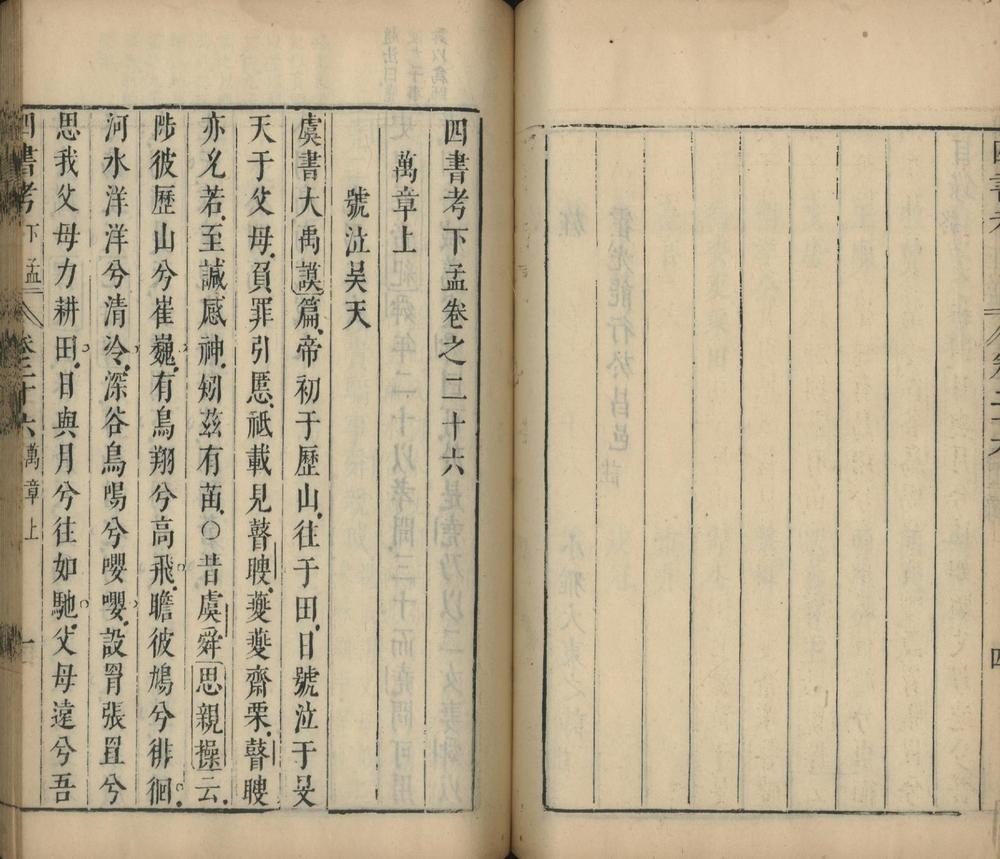 四書考下孟卷之二十六
萬章上
號泣旻天
虞書大禹謨篇帝初于歷山往于田日號泣于旻
天于父母負罪引慝祗載見瞽瞍夔夔齋栗瞽瞍
亦允若至諴感神矧茲有苗〇昔虞舜思親操云
陟彼歷山兮崔巍有鳥翔兮高飛瞻彼鳩兮徘徊
河水洋洋兮清冷深谷鳥鳴兮嚶嚶設罥張罝兮
思我父母力耕田日與月兮往如馳父母遠兮吾
四書考 下孟 卷二十六 萬章上 一
四